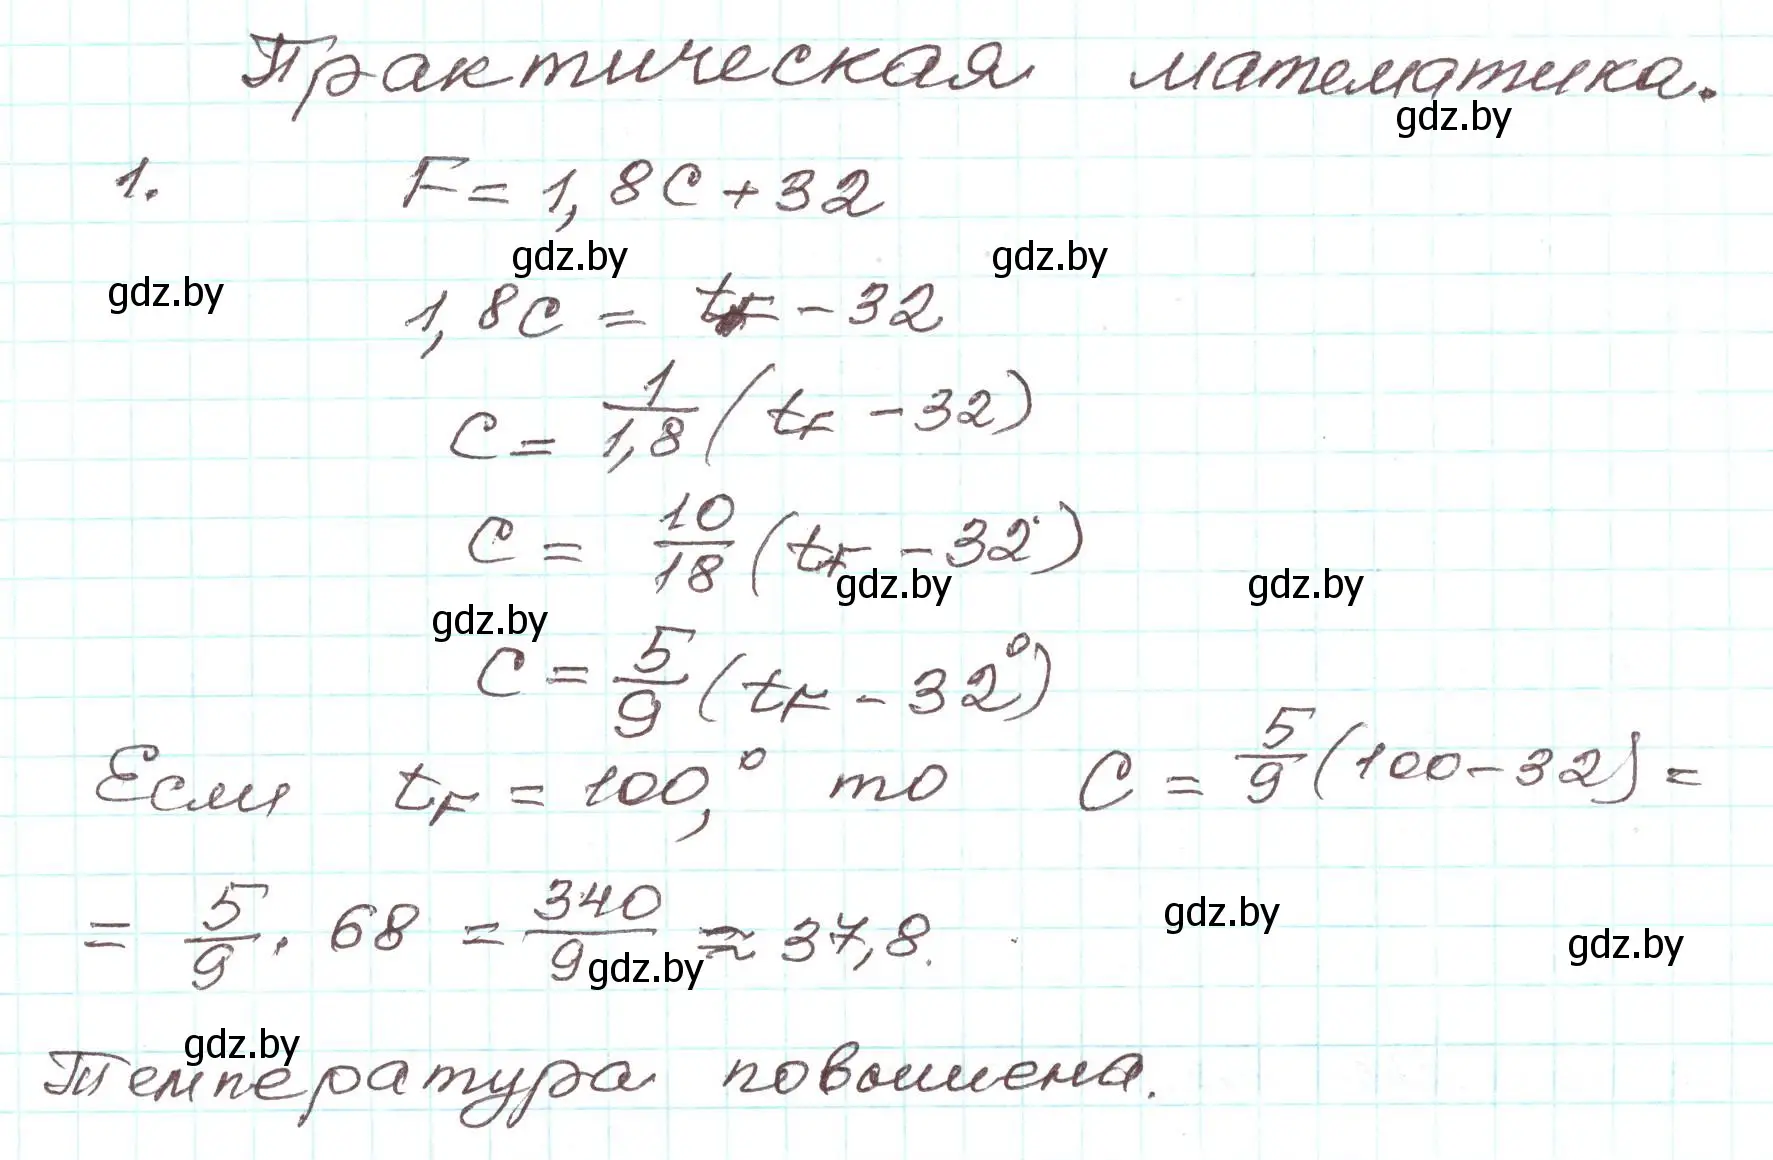 Практическая математика.
gdz.by
1. F = 1,8C + 32
gdz.by gdz.by
gdz.by
1,8C = t_F - 32
C = 1/1,8 (t_F - 32)
C = 10/18 (t_F - 32)
gdz.by gdz.by
gdz.by
C = 5/9 (t_F - 32°)
Если t_F = 100,° то C = 5/9 (100 - 32) =
= 5/9 · 68 = 340/9 ≈ 37,8.
gdz.by
gdz.by
gdz.by
gdz.by
Температура повышена.